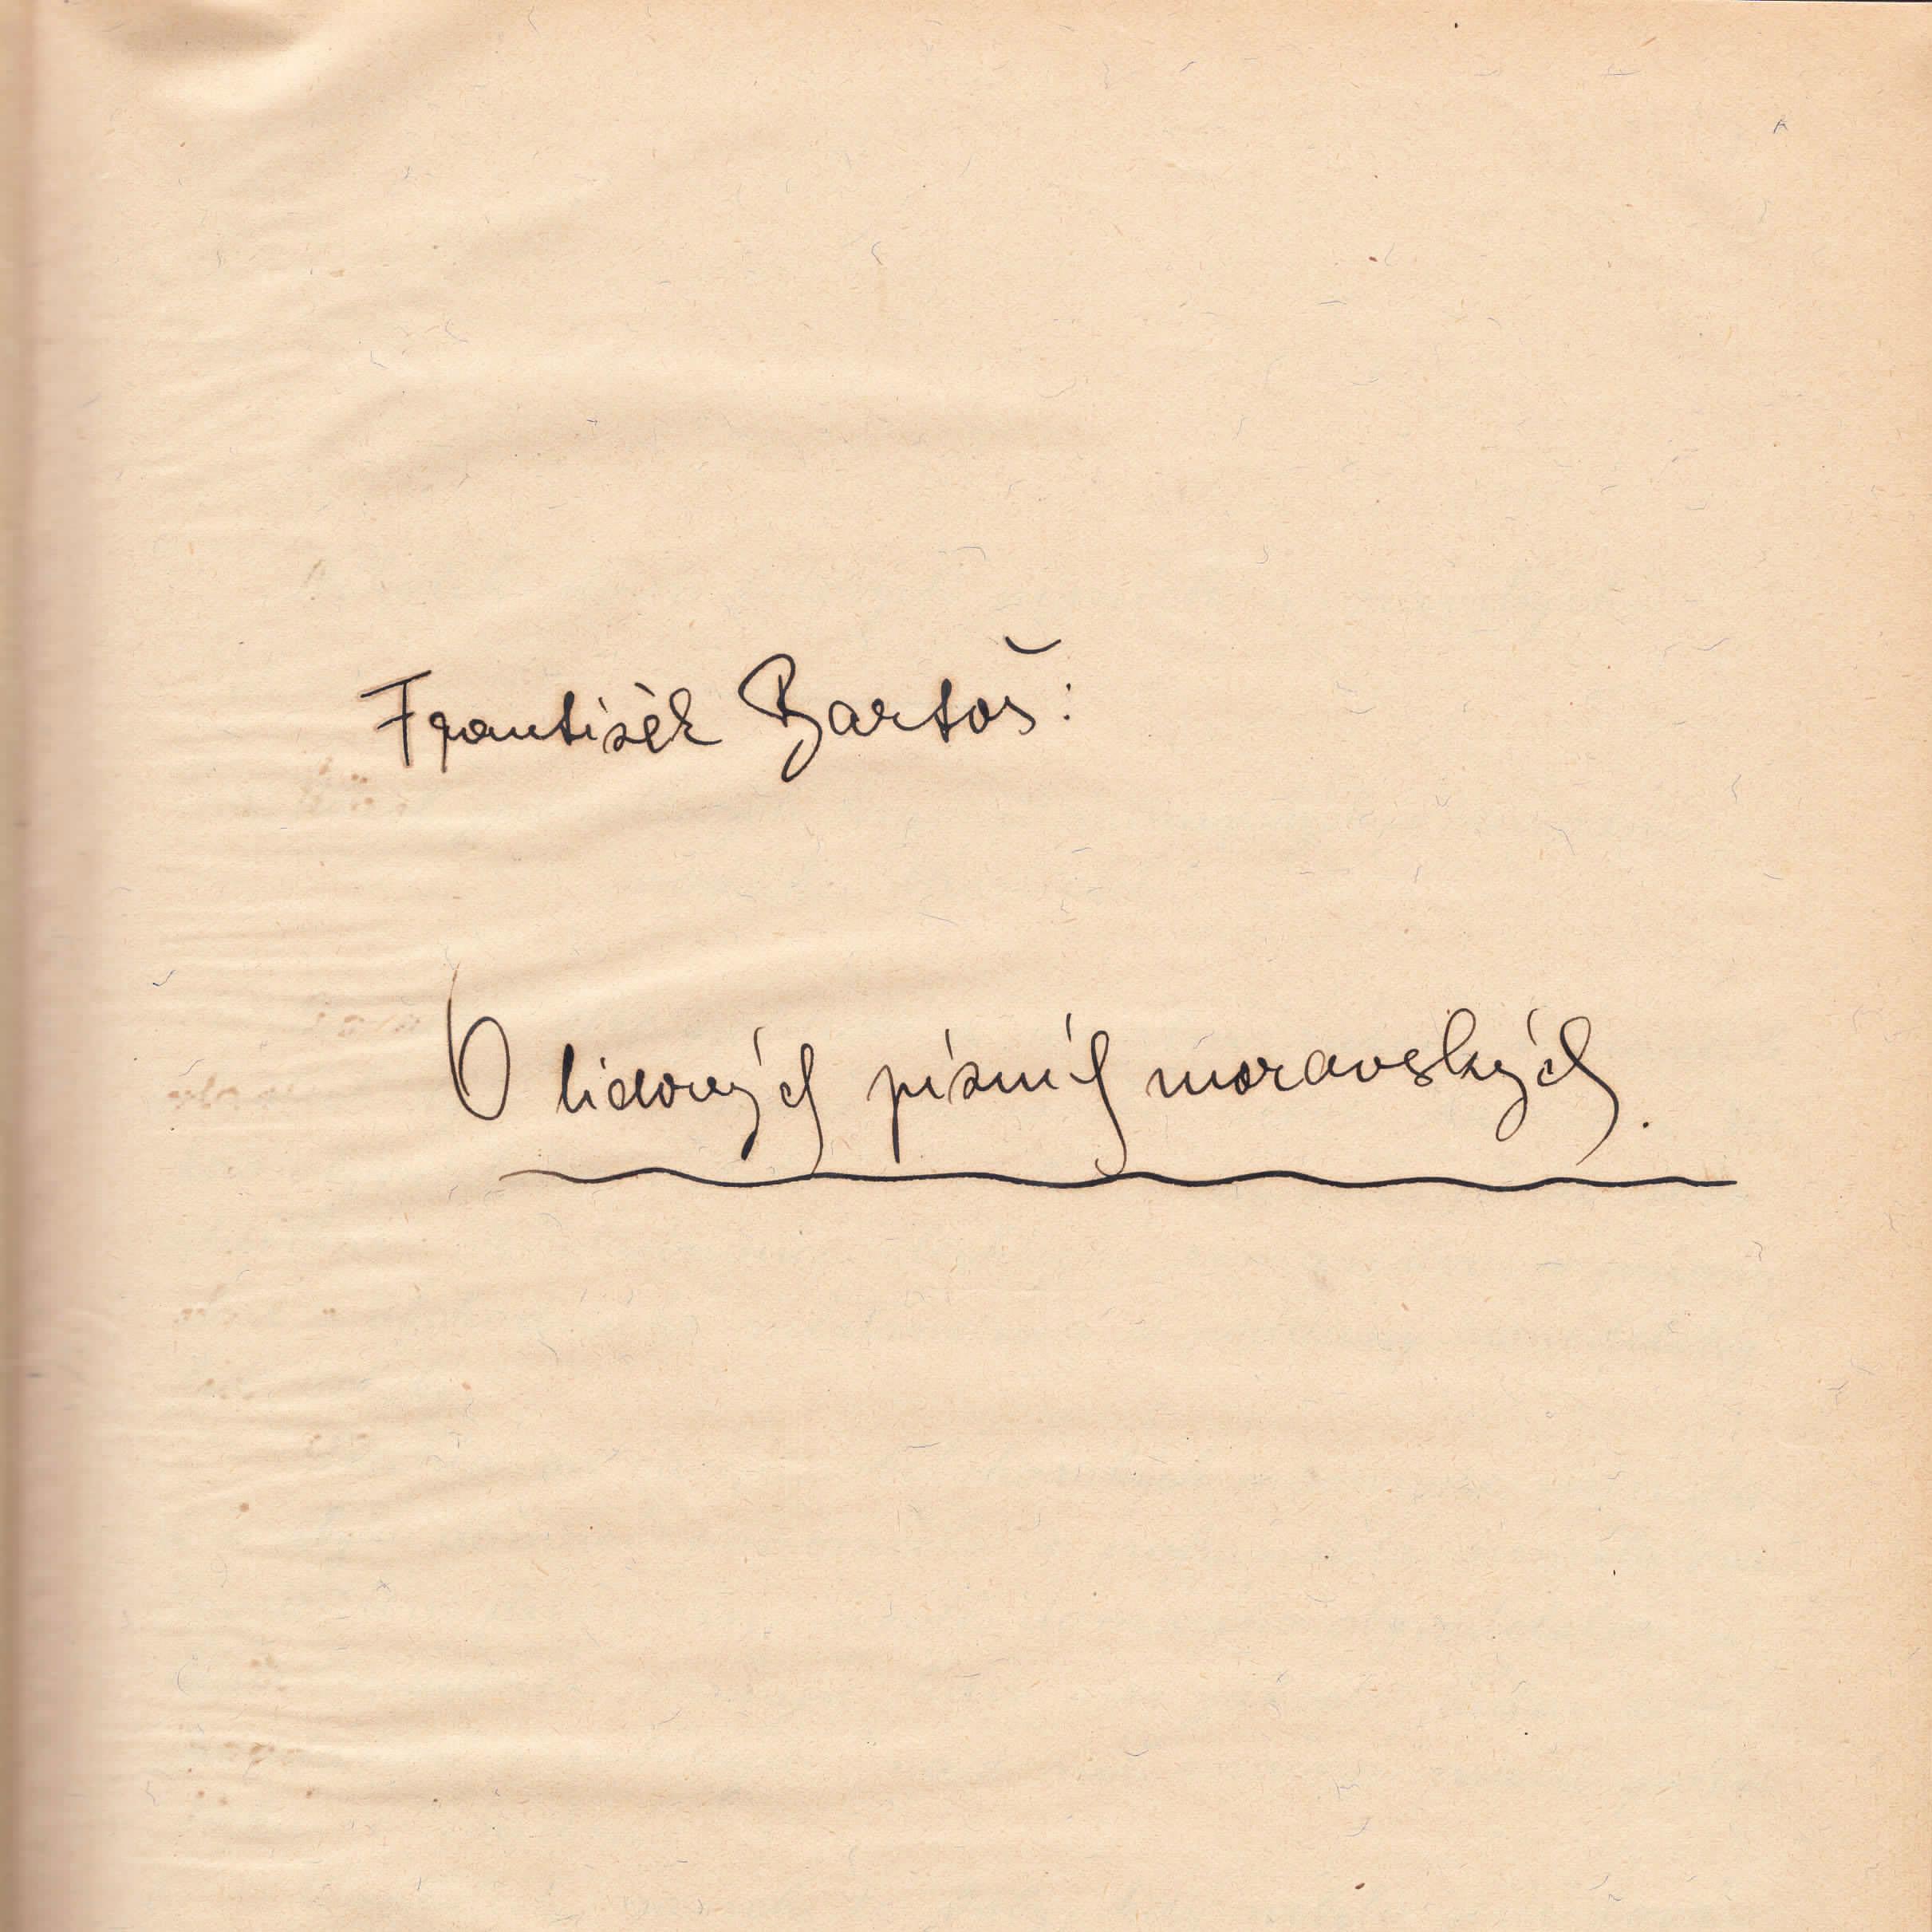 František Bartoš:
O lidových písních moravských.